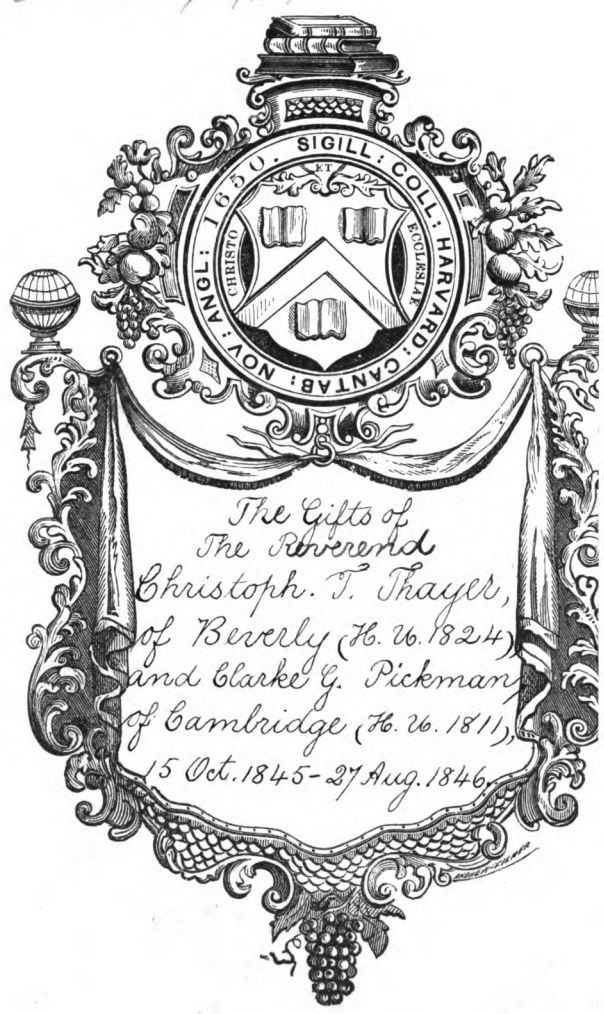 SIGILL: COLL: HARVARD: CANTAB: NOV: ANGL: 1650.
CHRISTO ET ECCLESIAE
The Gifts of
The Reverend
Christoph. T. Thayer,
of Beverly (H. U. 1824)
and Clarke G. Pickman
of Cambridge (H. U. 1811),
15 Oct. 1845-27 Aug. 1846.